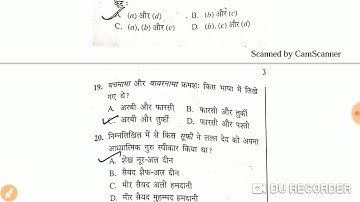 कूट :
A. (a) और (d)
B. (b) और (c)
C. (a), (b) और (c)
D. (b), (c) और (d)
Scanned by CamScanner
3
19. चचनामा और बाबरनामा क्रमशः किस भाषा में लिखे
गए थे?
A. अरबी और फारसी
B. फारसी और तुर्की
C. अरबी और तुर्की
D. फारसी और पश्तो
20. निम्नलिखित में से किस सूफी ने लल्ल देद को अपना
आध्यात्मिक गुरु स्वीकार किया था?
A. शेख नूर-अल दीन
B. सैयद शैफ-अल दीन
C. मीर सैयद अली हमदानी
D. मीर सैयद मुहम्मद हमदानी
DU RECORDER